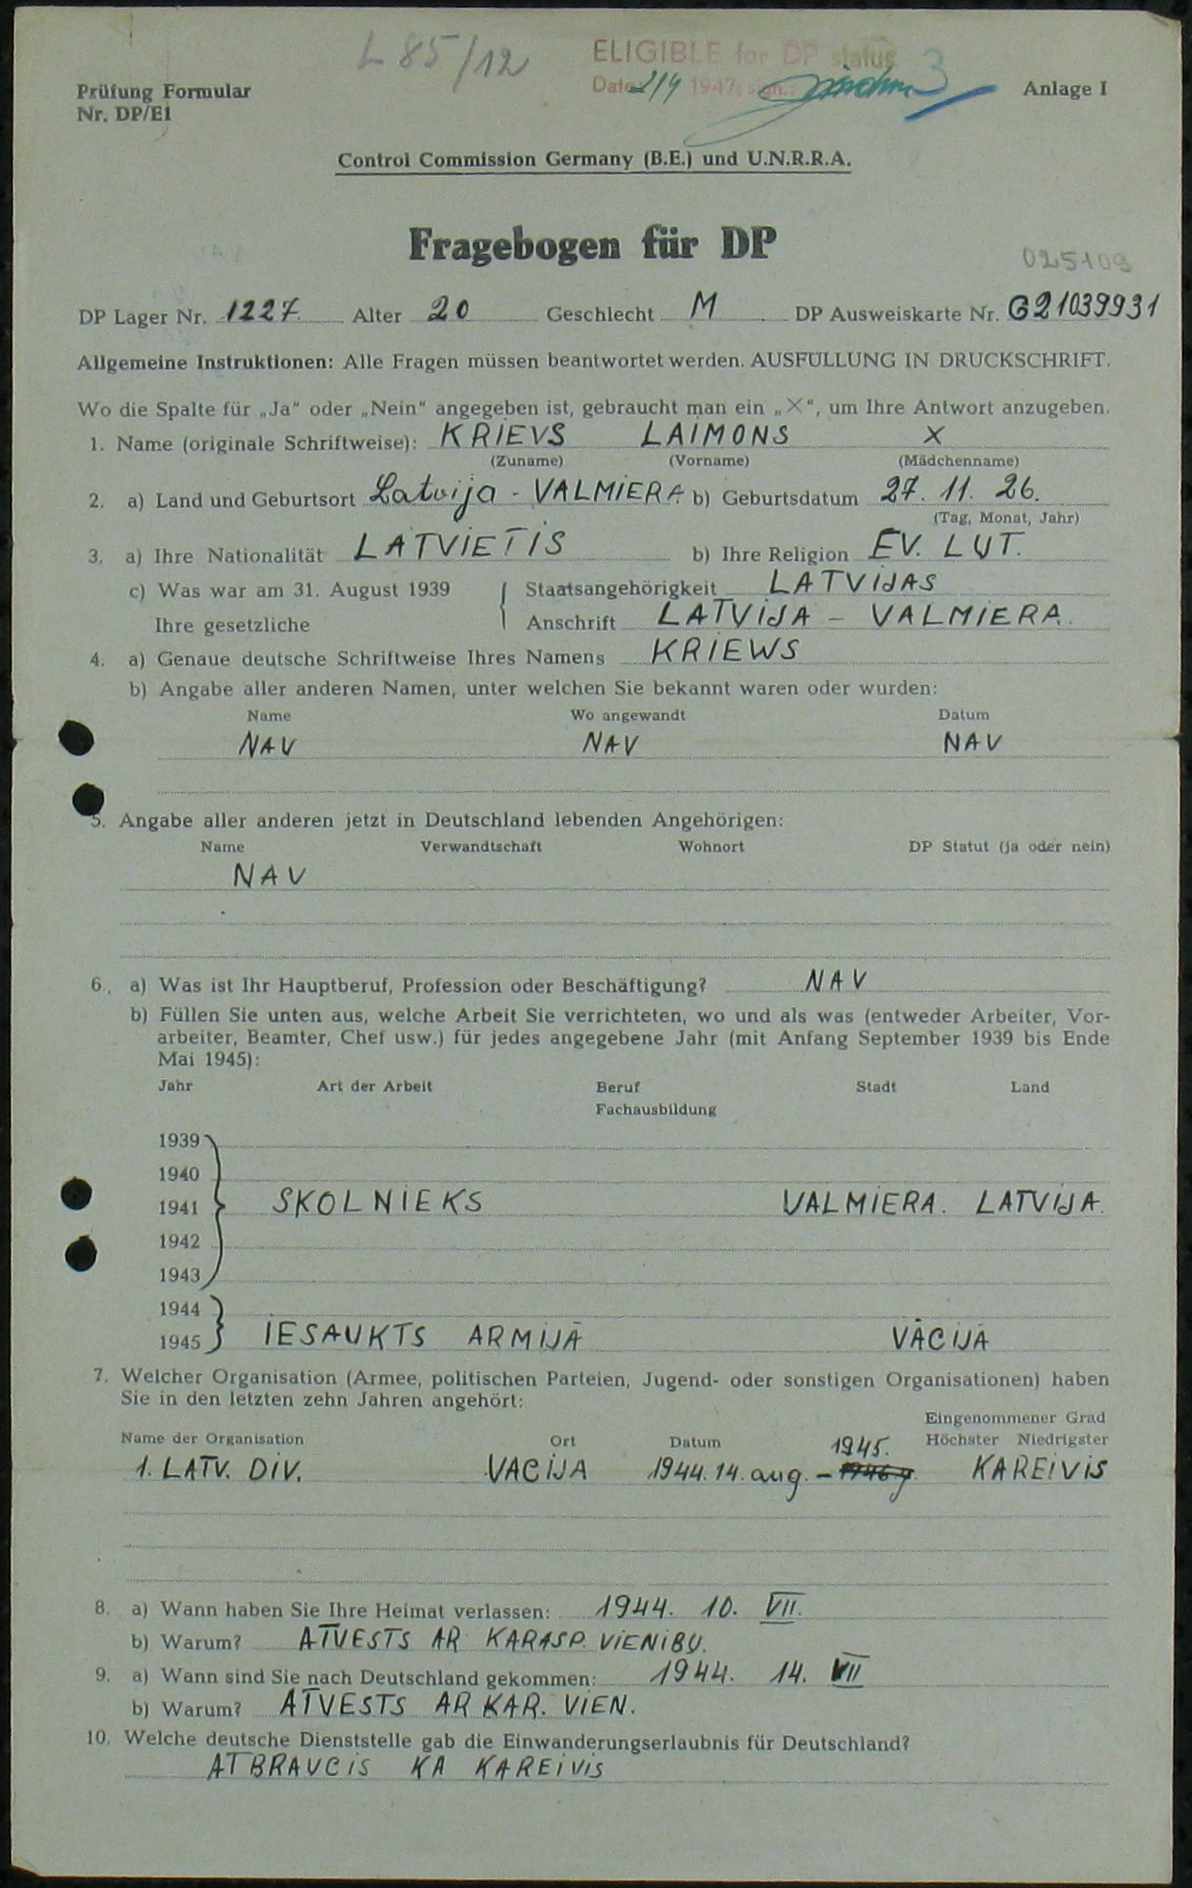 L 85/12
ELIGIBLE for DP status 3
Prüfung Formular
Date 2/4 1947, sign.
Anlage I
Nr. DP/E1
Control Commission Germany (B.E.) und U.N.R.R.A.
Fragebogen für DP
025109
DP Lager Nr. 1227. Alter 20 Geschlecht M DP Ausweiskarte Nr. G21039931
Allgemeine Instruktionen: Alle Fragen müssen beantwortet werden. AUSFÜLLUNG IN DRUCKSCHRIFT.
Wo die Spalte für „Ja" oder „Nein" angegeben ist, gebraucht man ein „X", um Ihre Antwort anzugeben.
1. Name (originale Schriftweise): KRIEVS LAIMONS X
(Zuname) (Vorname) (Mädchenname)
2. a) Land und Geburtsort Latvija - VALMIERA b) Geburtsdatum 27. 11. 26.
(Tag, Monat, Jahr)
3. a) Ihre Nationalität LATVIETIS b) Ihre Religion EV. LUT.
c) Was war am 31. August 1939 Staatsangehörigkeit LATVIJAS
Ihre gesetzliche Anschrift LATVIJA - VALMIERA.
4. a) Genaue deutsche Schriftweise Ihres Namens KRIEWS
b) Angabe aller anderen Namen, unter welchen Sie bekannt waren oder wurden:
Name Wo angewandt Datum
NAV NAV NAV
5. Angabe aller anderen jetzt in Deutschland lebenden Angehörigen:
Name Verwandtschaft Wohnort DP Statut (ja oder nein)
NAV
6. a) Was ist Ihr Hauptberuf, Profession oder Beschäftigung? NAV
b) Füllen Sie unten aus, welche Arbeit Sie verrichteten, wo und als was (entweder Arbeiter, Vor-
arbeiter, Beamter, Chef usw.) für jedes angegebene Jahr (mit Anfang September 1939 bis Ende
Mai 1945):
Jahr Art der Arbeit Beruf Stadt Land
Fachausbildung
1939
1940
1941 SKOLNIEKS VALMIERA. LATVIJA.
1942
1943
1944
1945 IESAUKTS ARMIJĀ VĀCIJĀ
7. Welcher Organisation (Armee, politischen Parteien, Jugend- oder sonstigen Organisationen) haben
Sie in den letzten zehn Jahren angehört:
Eingenommener Grad
Name der Organisation Ort Datum Höchster Niedrigster
1945.
1. LATV. DIV. VACIJA 1944. 14. aug. - 1946 g. KAREIVIS
8. a) Wann haben Sie Ihre Heimat verlassen: 1944. 10. VII.
b) Warum? ATVESTS AR KARASP. VIENIBU.
9. a) Wann sind Sie nach Deutschland gekommen: 1944. 14. VII
b) Warum? ATVESTS AR KAR. VIEN.
10. Welche deutsche Dienststelle gab die Einwanderungserlaubnis für Deutschland?
ATBRAUCIS KA KAREIVIS